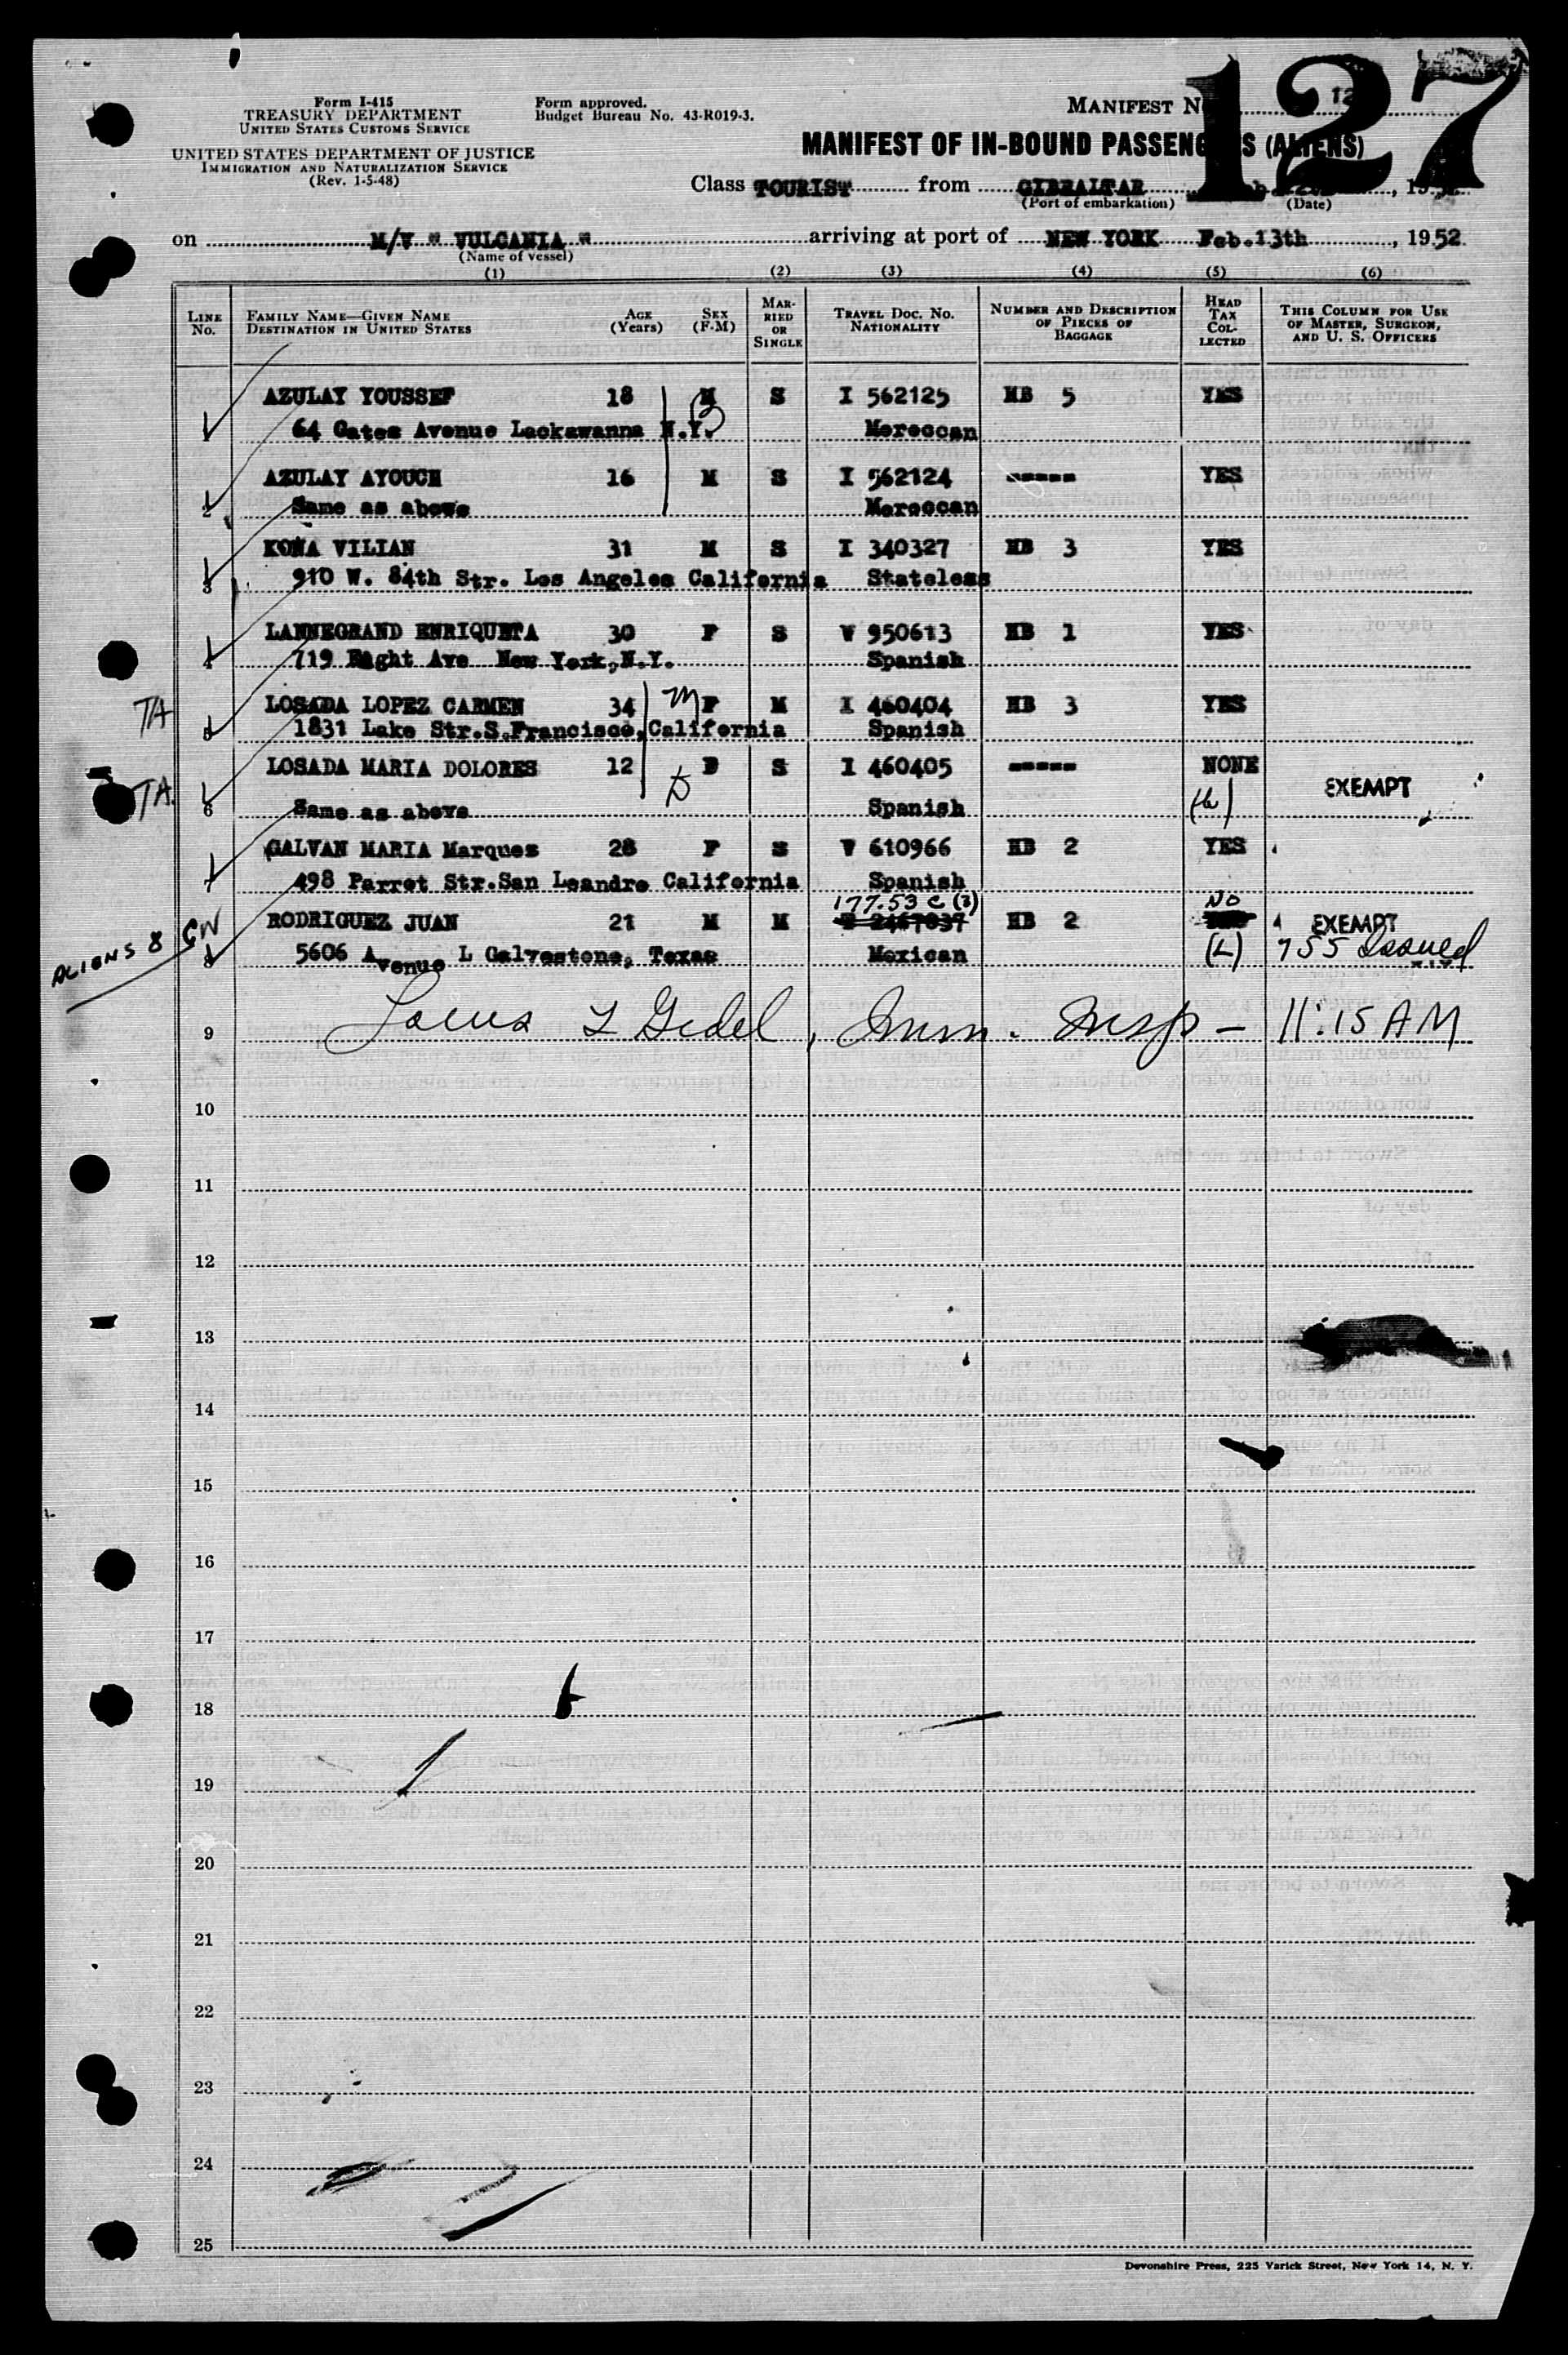 127
Form I-415
TREASURY DEPARTMENT
UNITED STATES CUSTOMS SERVICE
UNITED STATES DEPARTMENT OF JUSTICE
IMMIGRATION AND NATURALIZATION SERVICE
(Rev. 1-5-48)
Form approved.
Budget Bureau No. 43-R019-3.
MANIFEST
MANIFEST OF IN-BOUND PASSENGERS (ALIENS)
Class TOURIST from GIBRALTAR
(Port of embarkation) (Date)
on M/V " VULCANIA " arriving at port of NEW YORK Feb.13th, 1952
(Name of vessel)
(1) (2) (3) (4) (5) (6)
LINE No. FAMILY NAME—GIVEN NAME DESTINATION IN UNITED STATES AGE (Years) SEX (F-M) MARRIED OR SINGLE TRAVEL DOC. NO. NATIONALITY NUMBER AND DESCRIPTION OF PIECES OF BAGGAGE HEAD TAX COLLECTED THIS COLUMN FOR USE OF MASTER, SURGEON, AND U. S. OFFICERS
AZULAY YOUSSEF 18 M S I 562125 HB 5 YES
64 Gates Avenue Lackawanna N.Y. Moroccan
AZULAY AYOUCH 16 M S I 562124 ----- YES
2 Same as above Moroccan
KOÑA VILIAN 31 M S I 340327 HB 3 YES
3 910 W. 84th Str. Los Angeles California Stateless
LANNEGRAND ENRIQUETA 30 F S V 950613 HB 1 YES
4 719 Eight Ave New York,N.Y. Spanish
TA LOSADA LOPEZ CARMEN 34 F M I 460404 HB 3 YES
5 1831 Lake Str.S.Francisco,California Spanish
TA. LOSADA MARIA DOLORES 12 S I 460405 ----- NONE EXEMPT
6 Same as above Spanish
GALVAN MARIA Marques 28 F S V 610966 HB 2 YES
7 498 Parrot Str.San Leandro California Spanish
177.53 C (3) NO
RODRIGUEZ JUAN 21 M M HB 2 EXEMPT
ALIENS 8 GW 8 5606 Avenue L Galvestone, Texas Mexican (L) 755 Issued
9 Louis L Gedel, Imm. Insp - 11:15 AM
10
11
12
13
14
15
16
17
18
19
20
21
22
23
24
25
Devonshire Press, 225 Varick Street, New York 14, N. Y.